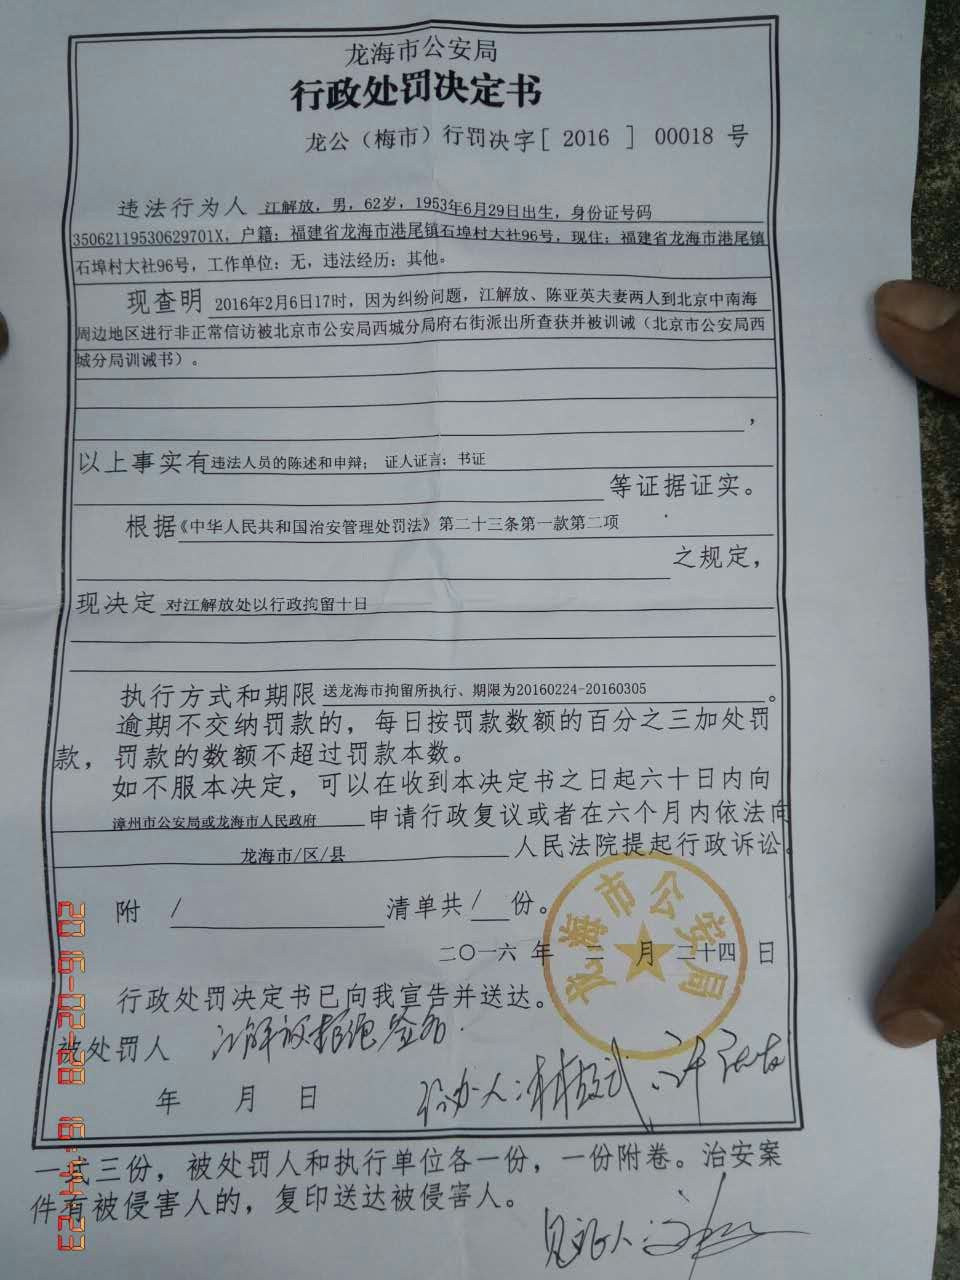 龙海市公安局
行政处罚决定书
龙公（梅市）行罚决字[ 2016 ] 00018 号
违法行为人 江解放，男，62岁，1953年6月29日出生，身份证号码
35062119530629701X，户籍：福建省龙海市港尾镇石埠村大社96号，现住：福建省龙海市港尾镇
石埠村大社96号，工作单位：无，违法经历：其他。
现查明 2016年2月6日17时，因为纠纷问题，江解放、陈亚英夫妻两人到北京中南海
周边地区进行非正常信访被北京市公安局西城分局府右街派出所查获并被训诫（北京市公安局西
城分局训诫书）。
，
以上事实有违法人员的陈述和申辩； 证人证言；书证
等证据证实。
根据《中华人民共和国治安管理处罚法》第二十三条第一款第二项
之规定，
现决定 对江解放处以行政拘留十日
执行方式和期限 送龙海市拘留所执行、期限为20160224-20160305 。
逾期不交纳罚款的，每日按罚款数额的百分之三加处罚
款，罚款的数额不超过罚款本数。
如不服本决定，可以在收到本决定书之日起六十日内向
漳州市公安局或龙海市人民政府 申请行政复议或者在六个月内依法向
龙海市/区/县 人民法院提起行政诉讼。
附 / 清单共 / 份。
二〇一六 年 二 月 二十四 日
龙海市公安局
行政处罚决定书已向我宣告并送达。
被处罚人 江解放拒绝签名.
年 月 日
经办人：林
一式三份，被处罚人和执行单位各一份，一份附卷。治安案
件有被侵害人的，复印送达被侵害人。
见证人
2016-02-28 16:44:23